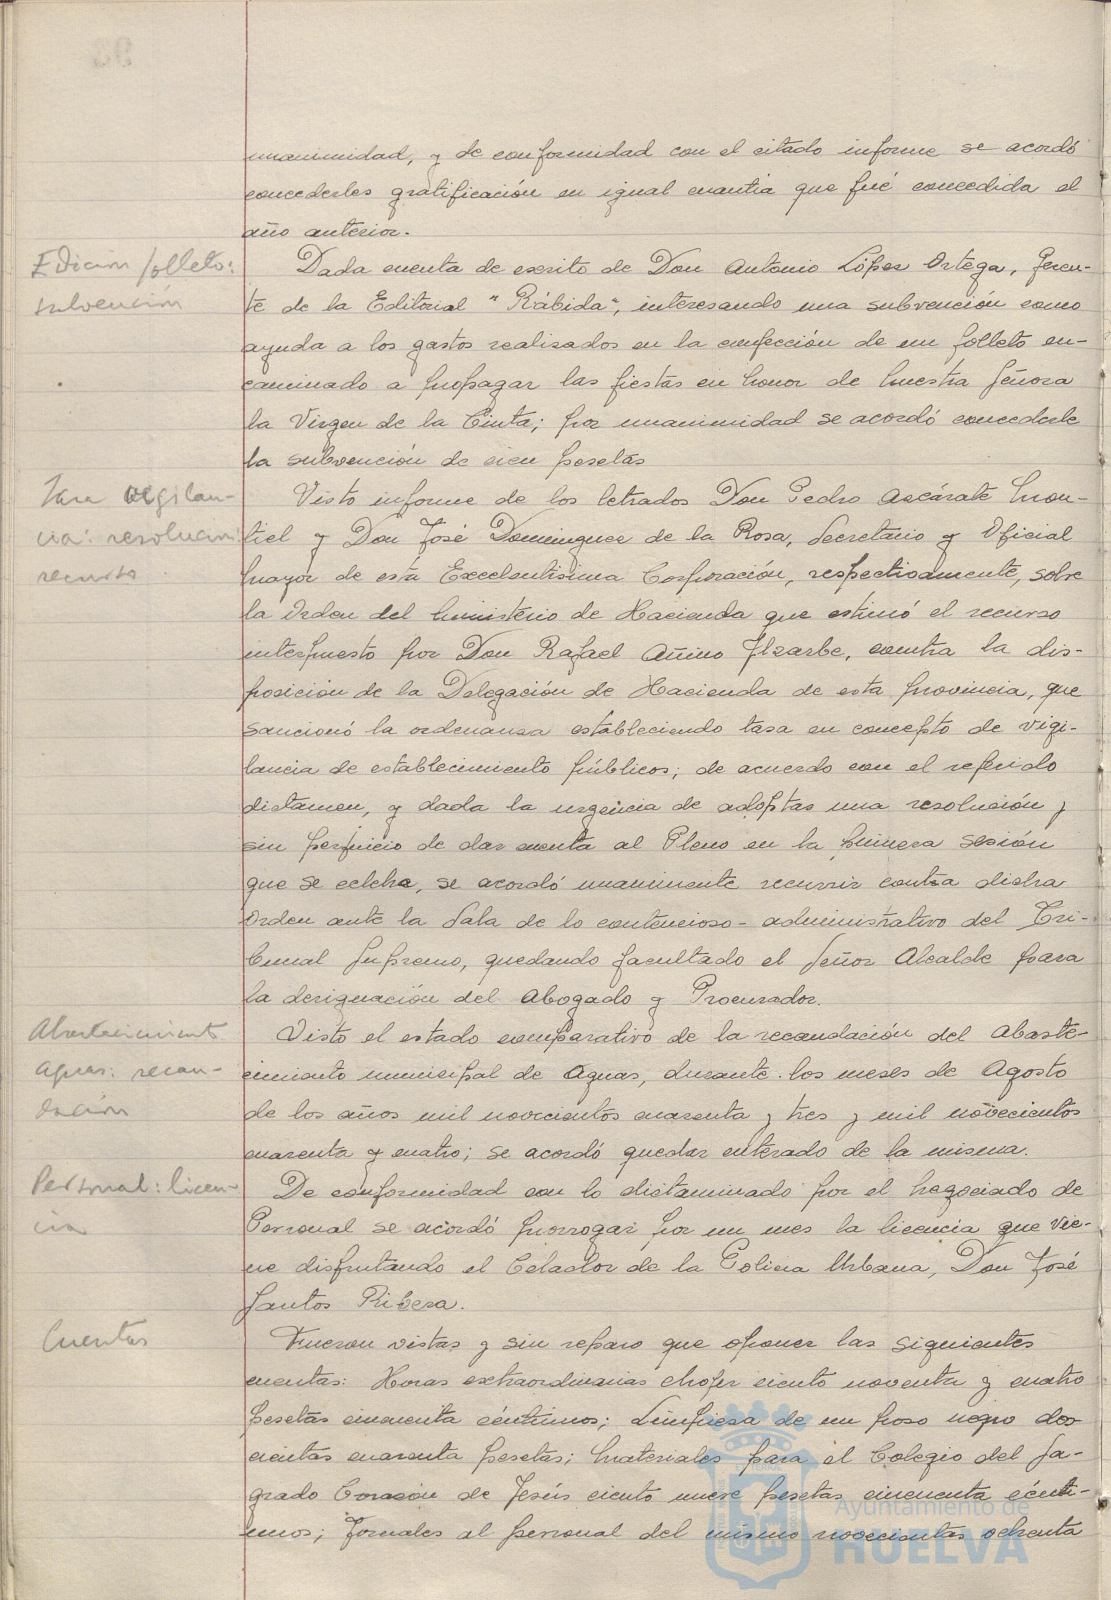 unanimidad, y de conformidad con el citado informe se acordó
concederles gratificación en igual cuantía que fué concedida el
año anterior.
Edición folleto:
subvención
Dada cuenta de escrito de Don Antonio López Ortega, Geren-
te de la Editorial "Rábida", interesando una subvención como
ayuda a los gastos realizados en la confección de un folleto en-
caminado a propagar las fiestas en honor de Nuestra Señora
la Virgen de la Cinta; por unanimidad se acordó concederle
la subvención de cien pesetas
Tasa vigilan-
cia: resolución
recurso
Visto informe de los letrados Don Pedro Azcárate Mon-
tiel y Don José Dominguez de la Rosa, Secretario y Oficial
Mayor de esta Excelentísima Corporación, respectivamente, sobre
la Orden del Ministerio de Hacienda que estimó el recurso
interpuesto por Don Rafael Añino Ilzarbe, contra la dis-
posición de la Delegación de Hacienda de esta provincia, que
sancionó la ordenanza estableciendo tasa en concepto de vigi-
lancia de establecimiento públicos; de acuerdo con el referido
dictamen, y dada la urgencia de adoptar una resolución y
sin perjuicio de dar cuenta al Pleno en la primera sesión
que se celebre, se acordó unanimente recurrir contra dicha
Orden ante la Sala de lo contencioso-administrativo del Tri-
bunal Supremo, quedando facultado el Señor Alcalde para
la designación del Abogado y Procurador.
Abastecimiento
Aguas: recau-
dación
Visto el estado comparativo de la recaudación del Abaste-
cimiento municipal de Aguas, durante los meses de Agosto
de los años mil novecientos cuarenta y tres y mil novecientos
cuarenta y cuatro; se acordó quedar enterado de la misma.
Personal: licen-
cia
De conformidad con lo dictaminado por el Negociado de
Personal se acordó prorrogar por un mes la licencia que vie-
ne disfrutando el Celador de la Policia Urbana, Don José
Santos Ribera.
Cuentas
Fueron vistas y sin reparo que oponer las siguientes
cuentas: Horas extraordinarias chofer ciento noventa y cuatro
pesetas cincuenta céntimos; Limpieza de un pozo negro dos
cientas cuarenta pesetas; Materiales para el Colegio del Sa-
grado Corazón de Jesús ciento nueve pesetas cincuenta cénti-
mos; Jornales al personal del mismo novecientas ochenta
Ayuntamiento de
HUELVA